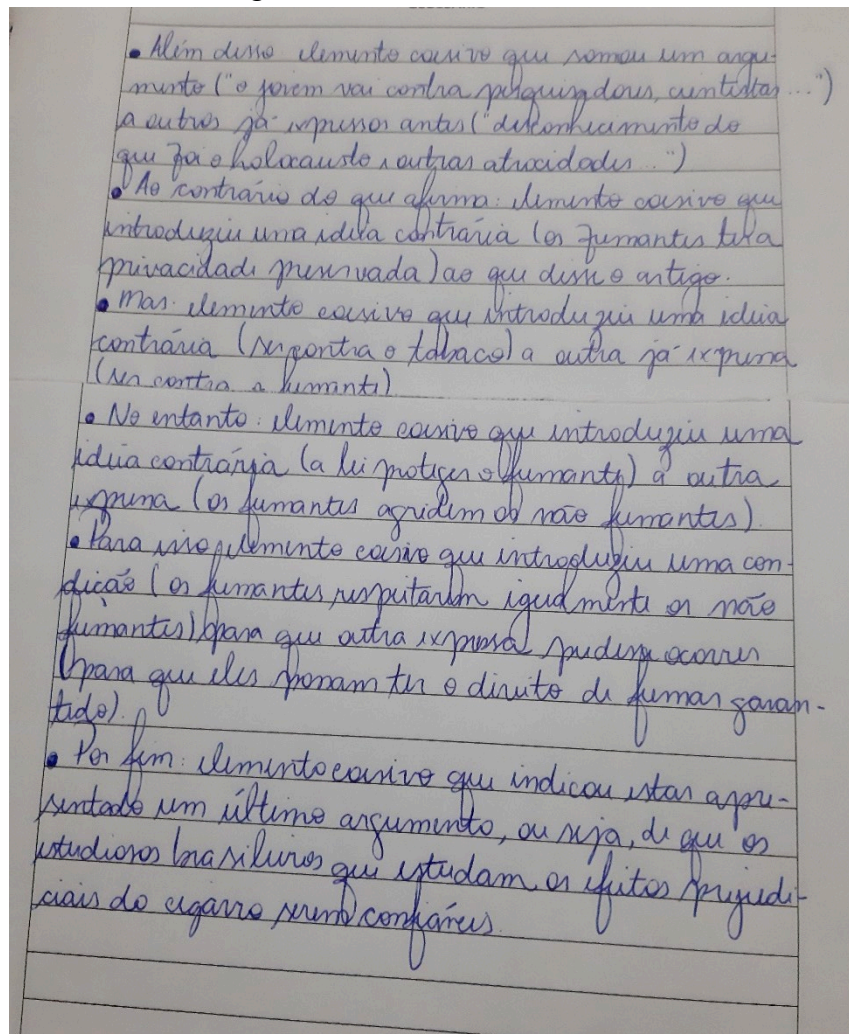 • Além disso elemento coesivo que somou um argu-
mento ("o jovem vai contra pesquisadores, cientistas...")
a outros já expressos antes ("desconhecimento do
que foi o holocausto e outras atrocidades...")
• Ao contrário do que afirma: elemento coesivo que
introduziu uma ideia contrária (os fumantes terá
privacidade preservada) ao que disse o artigo.
• Mas: elemento coesivo que introduziu uma ideia
contrária (ser contra o tabaco) a outra já expressa
(ser contra o fumante)
• No entanto: elemento coesivo que introduziu uma
ideia contrária (a lei proteger o fumante) a outra
expressa (os fumantes agridem os não fumantes).
• Para isso elemento coesivo que introduziu uma con-
dição (os fumantes respeitarem igualmente os não
fumantes) para que outra expressa pudesse ocorrer
(para que eles possam ter o direito de fumar garan-
tido).
• Por fim: elemento coesivo que indicou estar apre-
sentado um último argumento, ou seja, de que os
estudiosos brasileiros que estudam os efeitos prejudi-
ciais do cigarro serem confiáveis.